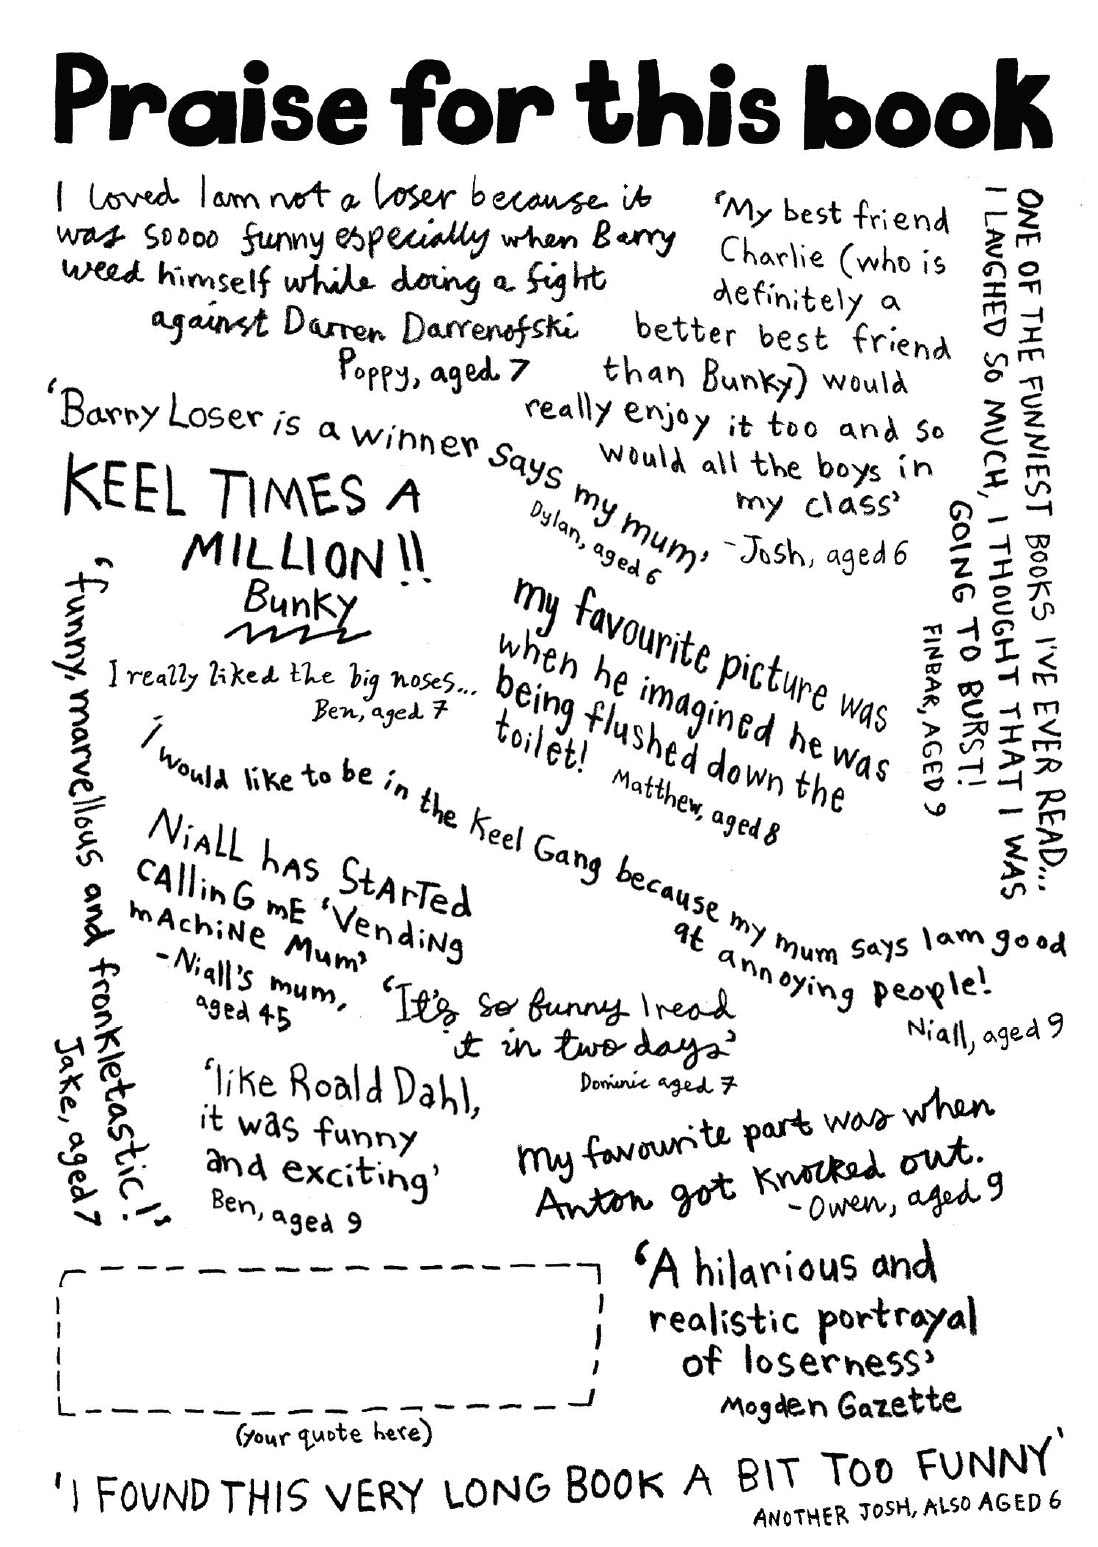 Praise for this book
I loved I am not a loser because it
was soooo funny especially when Barry
weed himself while doing a fight
against Darren Darrenofski
Poppy, aged 7
'My best friend
Charlie (who is
definitely a
better best friend
than Bunky) would
really enjoy it too and so
would all the boys in
my class'
-Josh, aged 6
ONE OF THE FUNNIEST BOOKS I'VE EVER READ...
I LAUGHED SO MUCH, I THOUGHT THAT I WAS
GOING TO BURST!
FINBAR, AGED 9
'Barry Loser is a winner says my mum'
Dylan, aged 6
KEEL TIMES A
MILLION!!
Bunky
'funny, marvellous and fronkletastic!'
Jake, aged 7
I really liked the big noses...
Ben, aged 7
my favourite picture was
when he imagined he was
being flushed down the
toilet!
Matthew, aged 8
i would like to be in the Keel Gang because my mum says I am good
at annoying people!
Niall, aged 9
Niall has started
calling me 'Vending
machine Mum'
-Niall's mum,
aged 45
'It's so funny I read
it in two days'
Dominic aged 7
'like Roald Dahl,
it was funny
and exciting'
Ben, aged 9
My favourite part was when
Anton got knocked out.
-Owen, aged 9
(your quote here)
'A hilarious and
realistic portrayal
of loserness'
Mogden Gazette
'I FOUND THIS VERY LONG BOOK A BIT TOO FUNNY'
ANOTHER JOSH, ALSO AGED 6